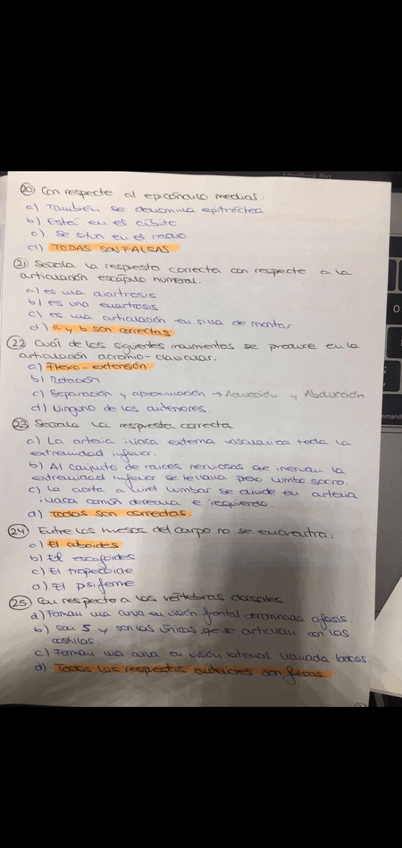 20 Con respecto al epicóndilo medial:
a) También se denomina epitróclea
b) Está en el cúbito
c) Se sitúa en el radio
d) TODAS SON FALSAS
21 Señala la respuesta correcta con respecto a la
articulación escápulo humeral.
a) es una diartrosis
b) es una enartrosis
c) es una articulación en silla de montar
d) a y b son correctas
22 Cuál de los siguientes movimientos se produce en la
articulación acromio-clavicular.
a) Flexo-extensión
b) Rotación
c) Separación y aproximación → Aducción y Abducción
d) Ninguno de los anteriores.
23 Señala la respuesta correcta
a) La arteria iliaca externa vasculariza toda la
extremidad inferior.
b) Al conjunto de raíces nerviosas que inervan la
extremidad inferior se le llama plexo lumbo sacro.
c) La aorta a nivel lumbar se divide en arteria
iliaca común derecha e izquierda
d) Todas son correctas.
24 Entre los huesos del carpo no se encuentra:
a) El
b) El escafoides
c) El trapezoide
d) El psiforme
25 Con respecto a las vértebras dorsales
a) Forman una curva en visión frontal denominada cifosis.
b) Son 5 y son las únicas que se articulan con las
costillas
c) Forman una curva en visión lateral llamada lordosis.
d) Todas las respuestas anteriores son falsas